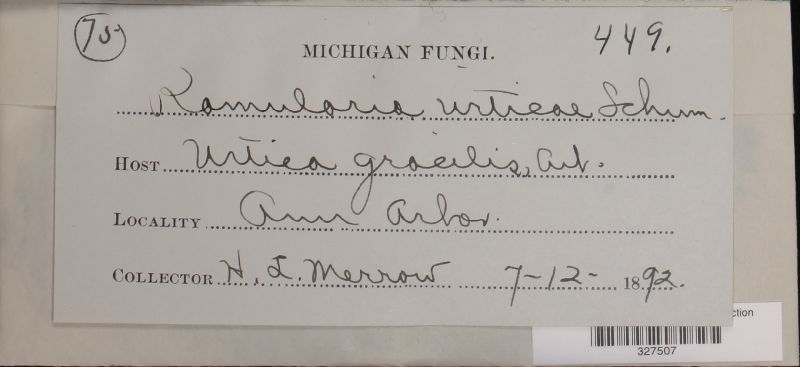 75
449.
MICHIGAN FUNGI.
Ramularia urticae Schum.
HOST Urtica gracilis, Ait.
LOCALITY Ann Arbor.
COLLECTOR H. L. Merrow 7-12- 1892.
ction
327507